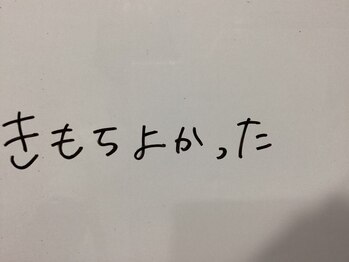 きもちよかった